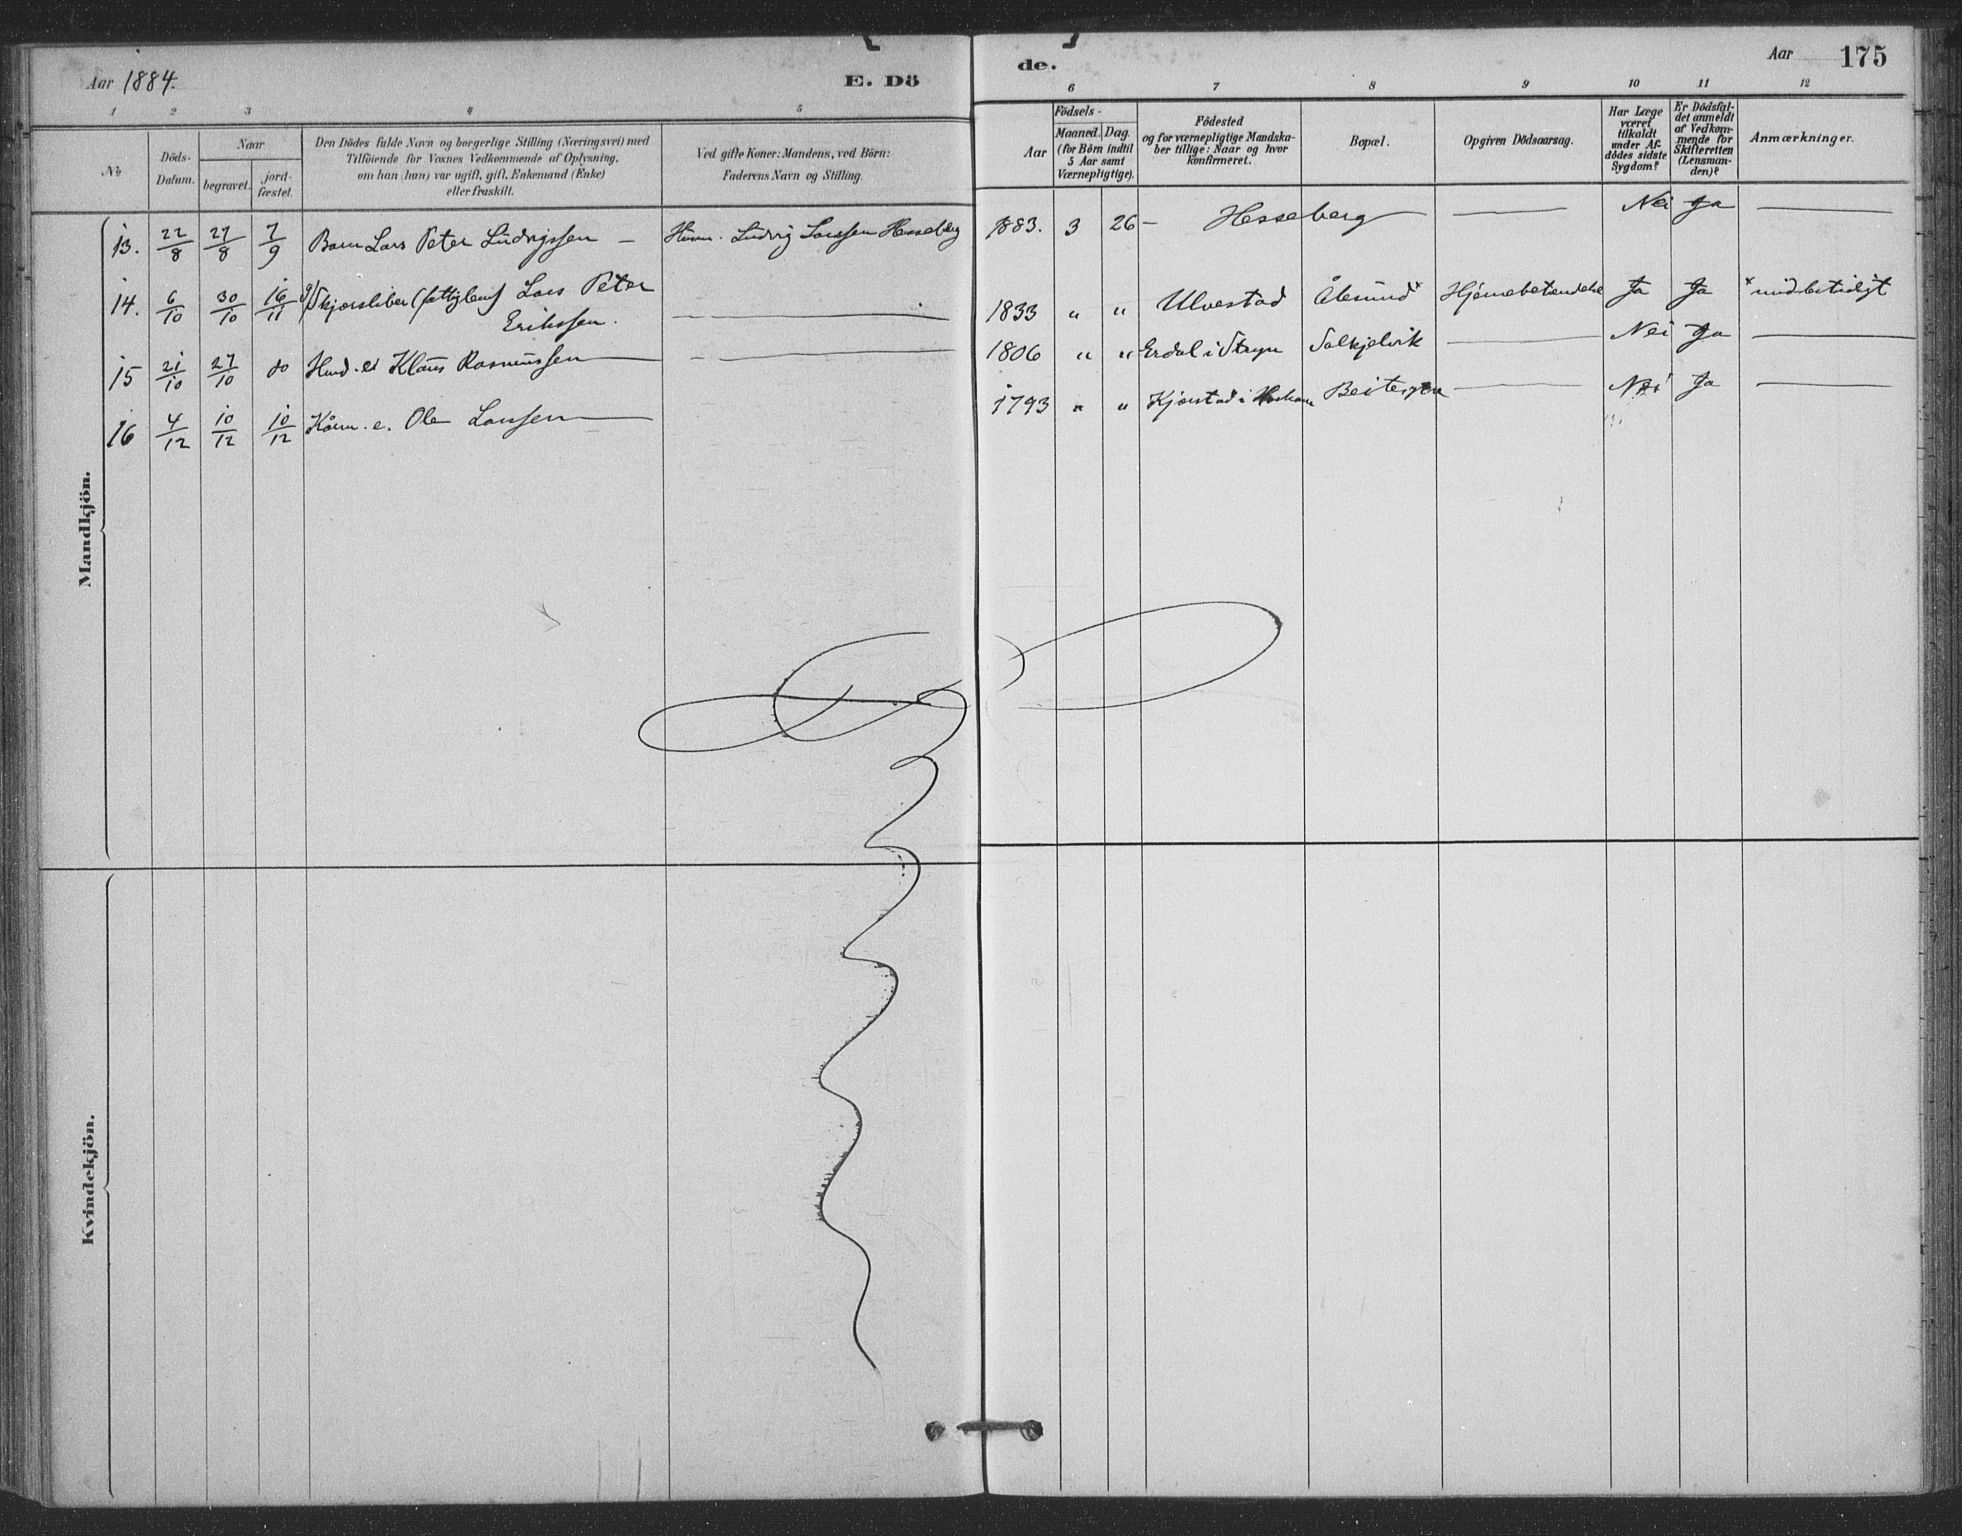 Aar 1884.
E. Dö
de.
Aar
175
1 2 3 4 5 6 7 8 9 10 11 12
No
Döds-
Datum.
Naar
begravet.
jord-
fæstet.
Den Dödes fulde Navn og borgerlige Stilling (Næringsvei) med
Tilföiende for Voxnes Vedkommende af Oplysning,
om han (hun) var ugift, gift, Enkemand (Enke)
eller fraskilt.
Ved gifte Koner: Mandens, ved Börn:
Faderens Navn og Stilling.
Födsels-
Aar
Maaned. Dag.
(for Börn indtil
5 Aar samt
Værnepligtige).
Födested
og for værnepligtige Mandska-
ber tillige: Naar og hvor
konfirmeret.
Bopæl.
Opgiven Dödsaarsag.
Har Læge
været
tilkaldt
under Af-
dödes sidste
Sygdom?
Er Dödsfal-
det anmeldt
af Vedkom-
mende for
Skifteretten
(Lensman-
den)?
Anmærkninger.
Mandkjön.
13. 22/8 27/8 7/9 Barn Lars Peter Ludvigssen — Husm. Ludvig Larssen Hesseberg 1883. 3 26 — Hesseberg — Nei Ja —
14. 6/10 30/10 16/11 Skjærsliber (fattiglem) Lars Peter
Erikssen. — 1833 " " Ulvestad Ålesund* Hjernebetændelse Ja Ja *midlertidigt
15 21/10 27/10 do Klaus Rasmussen — 1806 " " Erdal i Stryn Solkjelvik — Nei Ja —
16 4/12 10/12 10/12 Kårm. e. Ole Larssen — 1793 " " Kjærstad i — Nei Ja —
Kvindekjön.